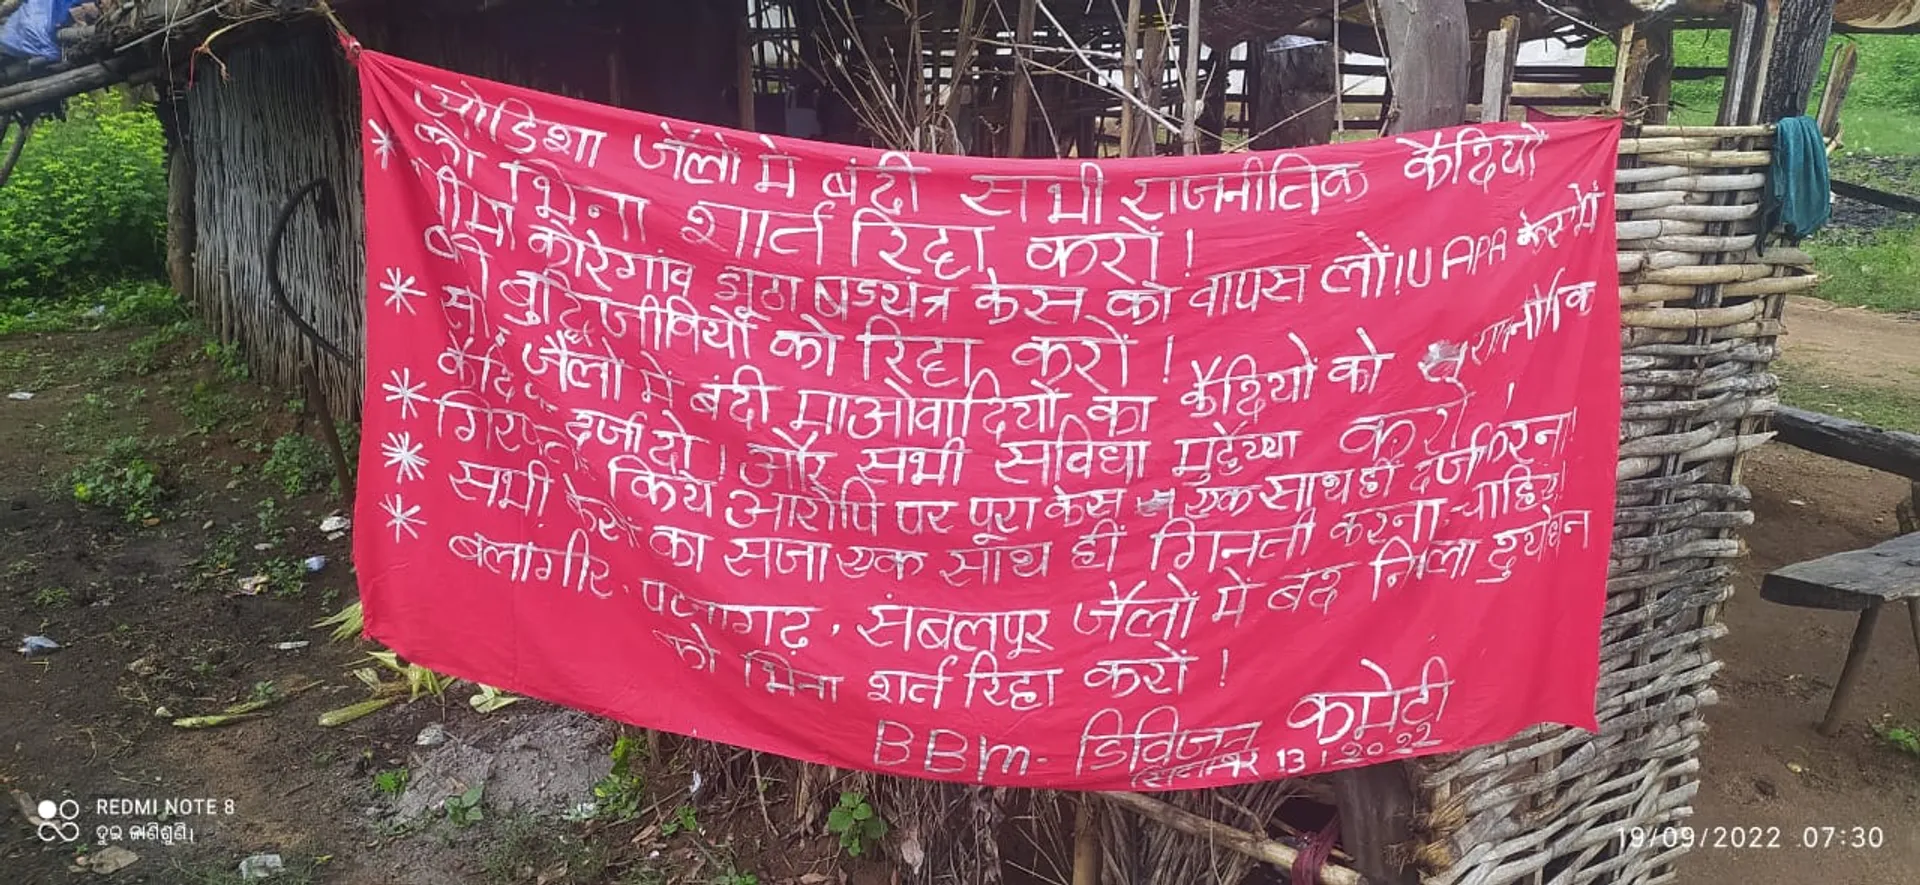 ओडिशा जेलों मे बंदी सभी राजनीतिक कैदियों
* को भिना शर्त रिहा करों!
भीमा कोरेगांव झूठा षडयंत्र केस को वापस लों! UAPA केस में
* बुद्धिजीवियों को रिहा करों!
जेलों में बंदी माओवादियों का कैदियों को राजनीतिक
* दर्जा दो! और सभी सविधा मुहैय्या करो!
* किये आरोपि पर पूरा केस एक साथ ही दर्ज करना!
सभी केसों का सजा एक साथ ही गिनती करना चाहिए!
* बलांगीर, संबलपूर जेलों में बंद दुर्योधन
को भिना शर्त रिहा करों!
BBM- डिविजन कमेटी
13, 2022
REDMI NOTE 8
ଦୁଇ ଜାଣିଶୁଣି।
19/09/2022 07:30